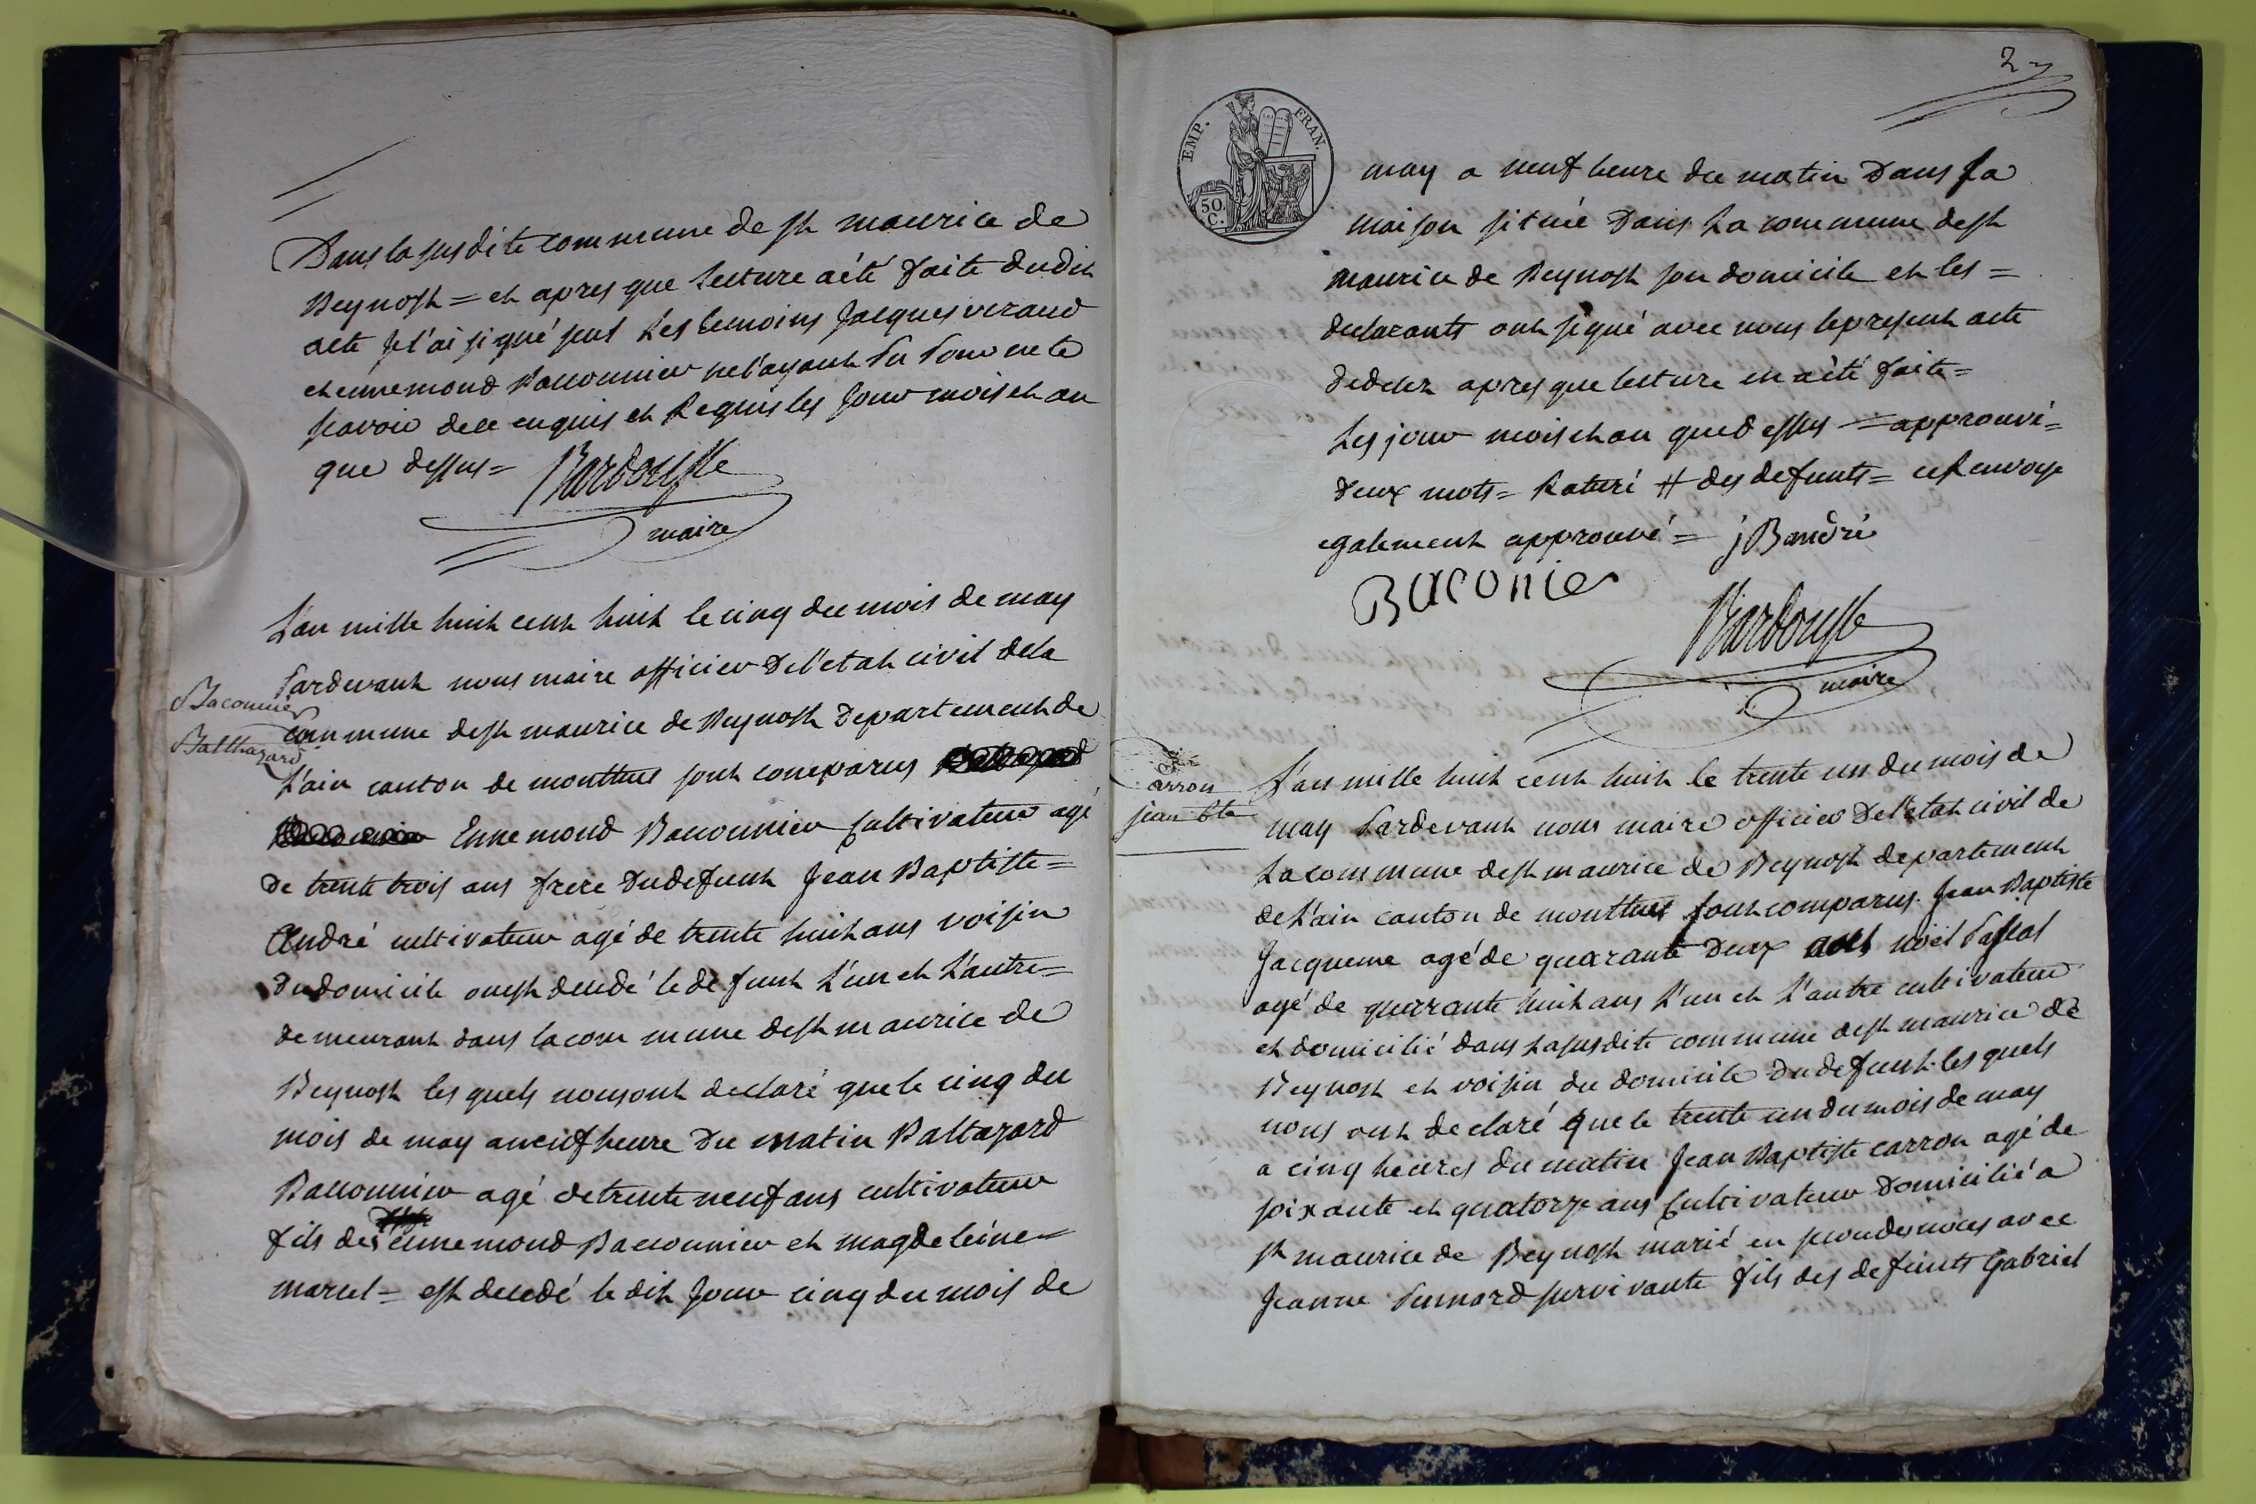 Dans la susdite commune de st maurice de
Beynost = et apres que lecture a été faite dudit
acte je l'ai signé seul les temoins Jacques
et ennemond Baconnier ne l'ayant su pour ne le
savoir de ce enquis et Requis les jour mois et an
que dessus =
maire
L'an mille huit cent huit le cinq du mois de may
Pardevant nous maire officier de l'etat civil de la
Baconnier
commune de st maurice de Beynost departement de
Balthazard
L'ain canton de montluel sont comparus
Ennemond Baconnier Cultivateur agé
de trente trois ans frere du defunt Jean Baptiste =
André cultivateur agé de trente huit ans voisin
du domicile ou est decedé le defunt L'un et L'autre =
demeurant dans la commune de st maurice de
Beynost les quels nous ont declaré que le cinq du
mois de may a neuf heure du matin Baltazard
Baconnier agé de trente neuf ans cultivateur
fils des ennemond Baconnier et magdeleine =
marcel = est decedé le dit jour cinq du mois de
27
EMP. FRAN.
50.
C.
may a neuf heure du matin Dans sa
maison située dans La commune de st
maurice de Beynost son domicile et les =
declarants ont signé avec nous le present acte
de deces apres que lecture en a été faite =
Les jour mois et an que dessus = approuvé =
deux mots = Raturé # des defunts = ce Renvoye
egalement approuvé = j B andré
Baconier
maire
carron
jean bte
L'an mille huit cent huit le trente un du mois de
may Pardevant nous maire officier de l'etat civil de
La commune de st maurice de Beynost departement
de L'ain canton de montluel sont comparus Jean Baptiste
Jacqueme agé de quarante deux ans noël
agé de quarante huit ans L'un et L'autre cultivateur
et domicilié dans La susdite commune de st maurice de
Beynost et voisin du domicile du defunt les quels
nous ont declaré que le trente un du mois de may
a cinq heures du matin Jean Baptiste carron agé de
soixante et quatorze ans Cultivateur Domicilié a
st maurice de Beynost marié en secondes noces avec
Jeanne survivante fils des defunts Gabriel